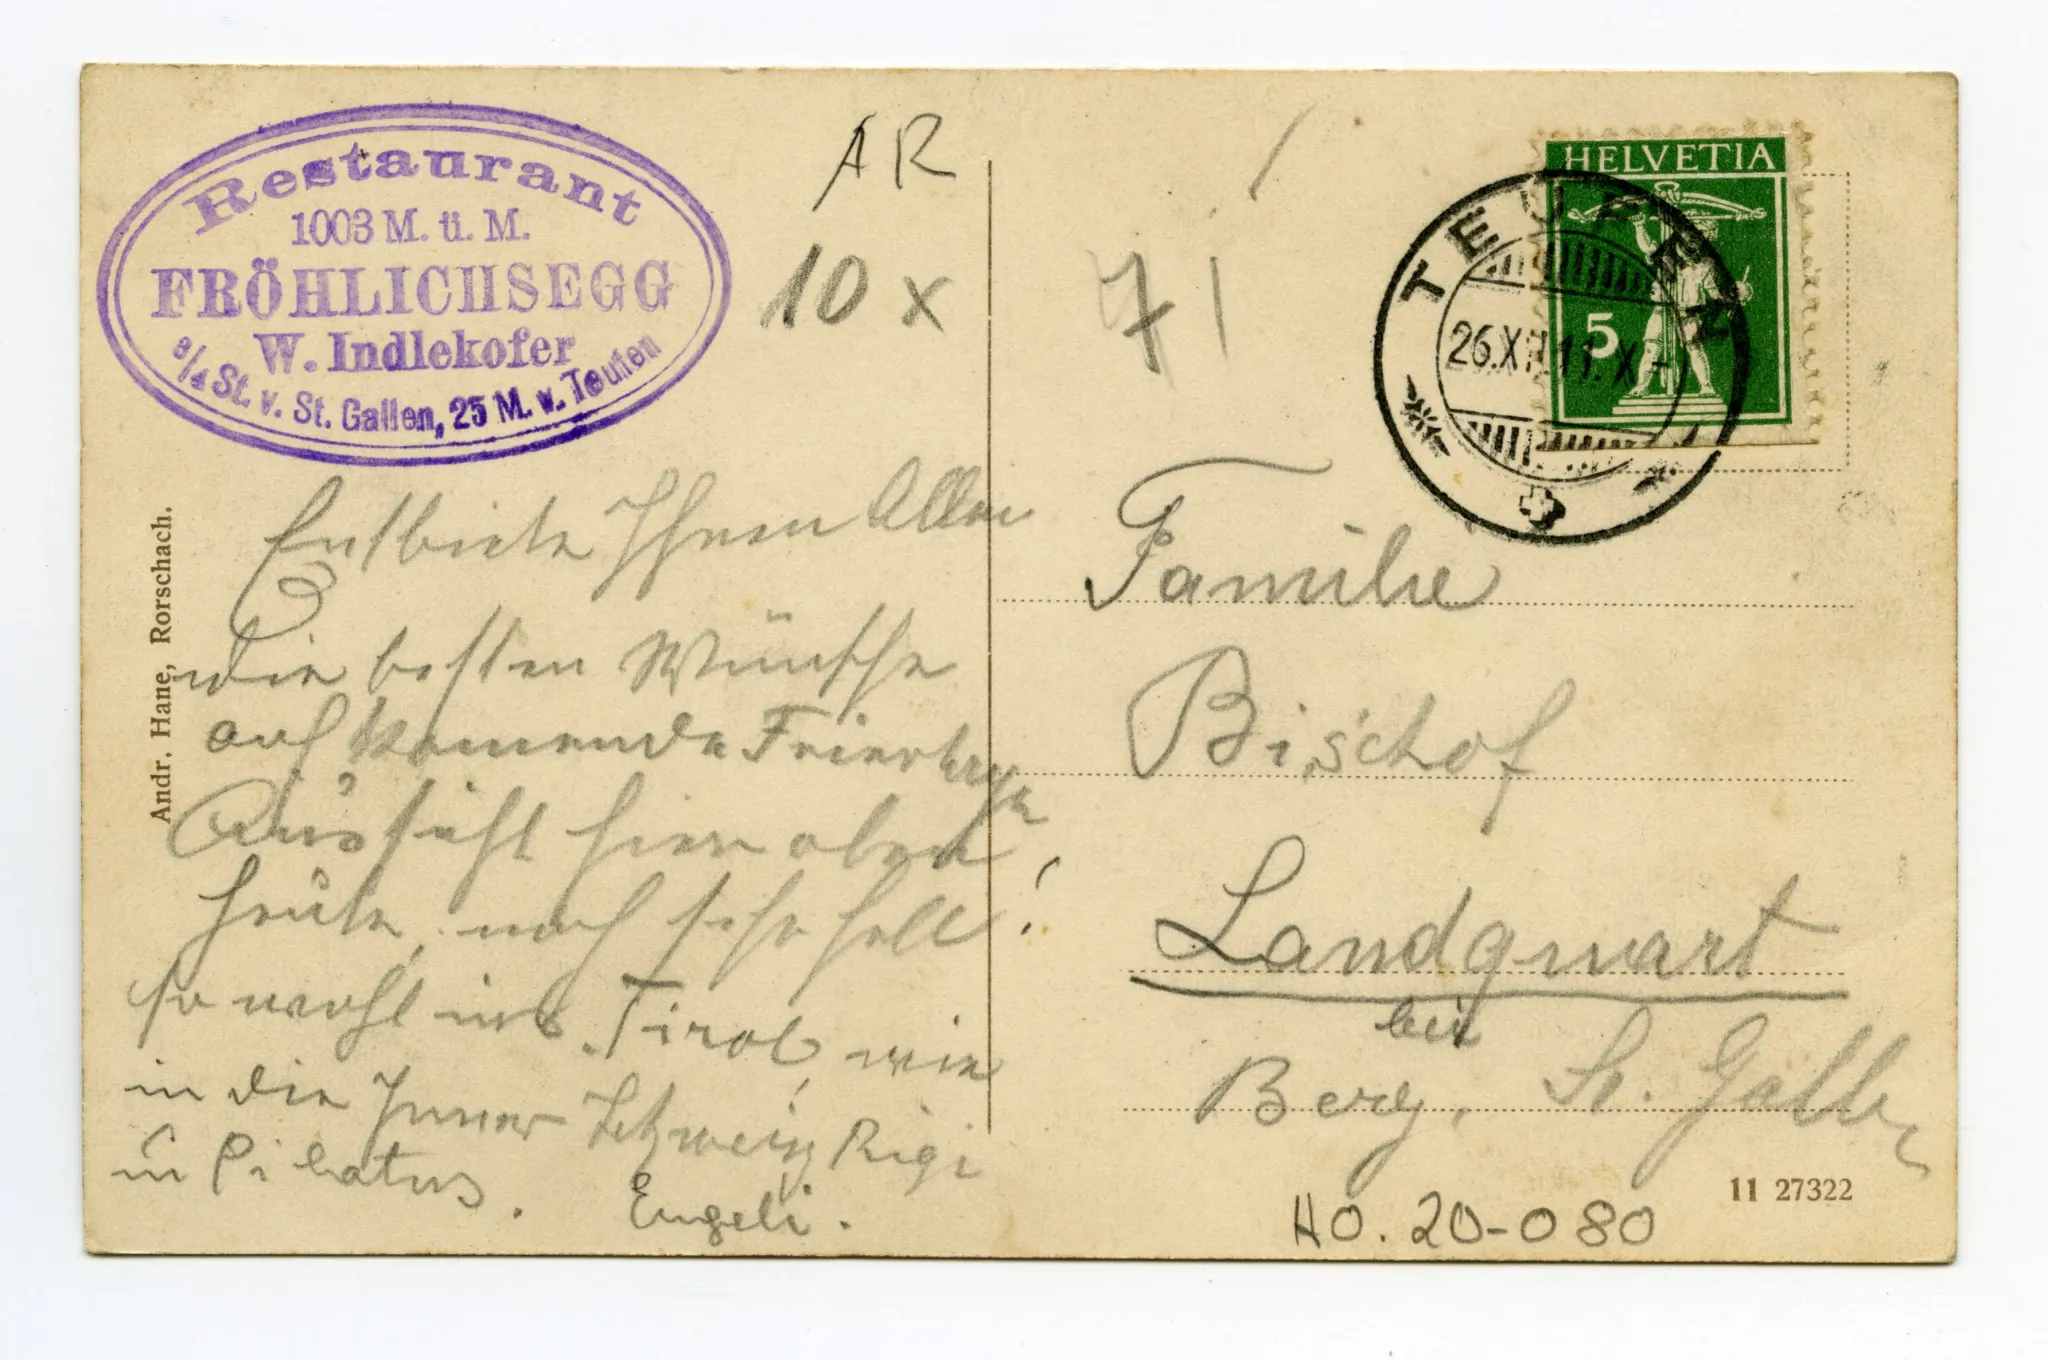 Restaurant
1003 M. ü. M.
FRÖHLICHSEGG
W. Indlekofer
3/4 St. v. St. Gallen, 25 M. v. Teufen
AR
10 x
71
HELVETIA
5
TEUFEN
26.XII.11.X-
Andr. Hane, Rorschach.
Entbiete Ihnen Allen
die besten Wünsche
auf kommende Feiertage
Aussicht hier oben
heute, noch sehr hell!
so wohl ins Tirol, wie
in die Inner Schweiz, Rigi
u Pilatus. Engeli.
Familie
Bischof
Landquart
bei
Berg, St. Gallen
11 27322
HO. 20-080